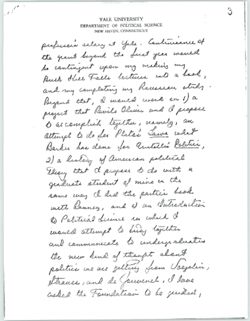 3
YALE UNIVERSITY
DEPARTMENT OF POLITICAL SCIENCE
NEW HAVEN, CONNECTICUT
professor's salary at Yale. Continuance of
the grant beyond the first year would
be contingent upon my making my
Buck Hill Falls lectures into a book,
and my completing my Rousseau study.
Beyond that, I would work on 1) a
project that Revilo Oliver and I propose
to accomplish together, namely, an
attempt to do for Plato's Laws what
Barker has done for Aristotle's Politics,
2) a history of American political
theory that I propose to do with a
graduate student of mine in the
same way I did the parties book
with Ranney, and 3) an Introduction
to Political Science in which I
would attempt to bring together
and communicate to undergraduates
the new kind of thought about
politics we are getting from Voegelin,
Strauss, and de Jouvenel. I have
asked the Foundation to be guided,